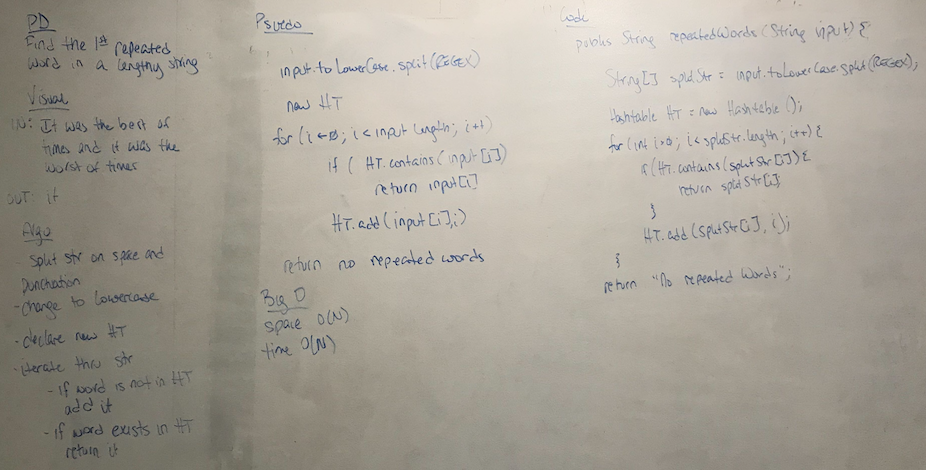 PD
Find the 1st repeated
word in a lengthy string
Visual
IN: It was the best of
times and it was the
worst of times
OUT: it
Algo
- split str on space and
punctuation
- change to lowercase
- declare new HT
- iterate thru str
- if word is not in HT
add it
- if word exists in HT
return it
Psuedo
input.toLowerCase.split(REGEX)
new HT
for (i ← 0; i < input length; i++)
if ( HT.contains (input [i])
return input[i]
HT.add (input [i], i)
return no repeated words
Big O
space O(N)
time O(N)
Code
public String repeatedWords (String input) {
String[] splitStr = input.toLowerCase.split(REGEX);
Hashtable HT = new Hashtable ();
for (int i=0; i < splitStr.length; i++) {
if (HT.contains (splitStr [i]) {
return splitStr[i];
}
HT.add (splitStr[i], i);
}
return "No repeated Words";